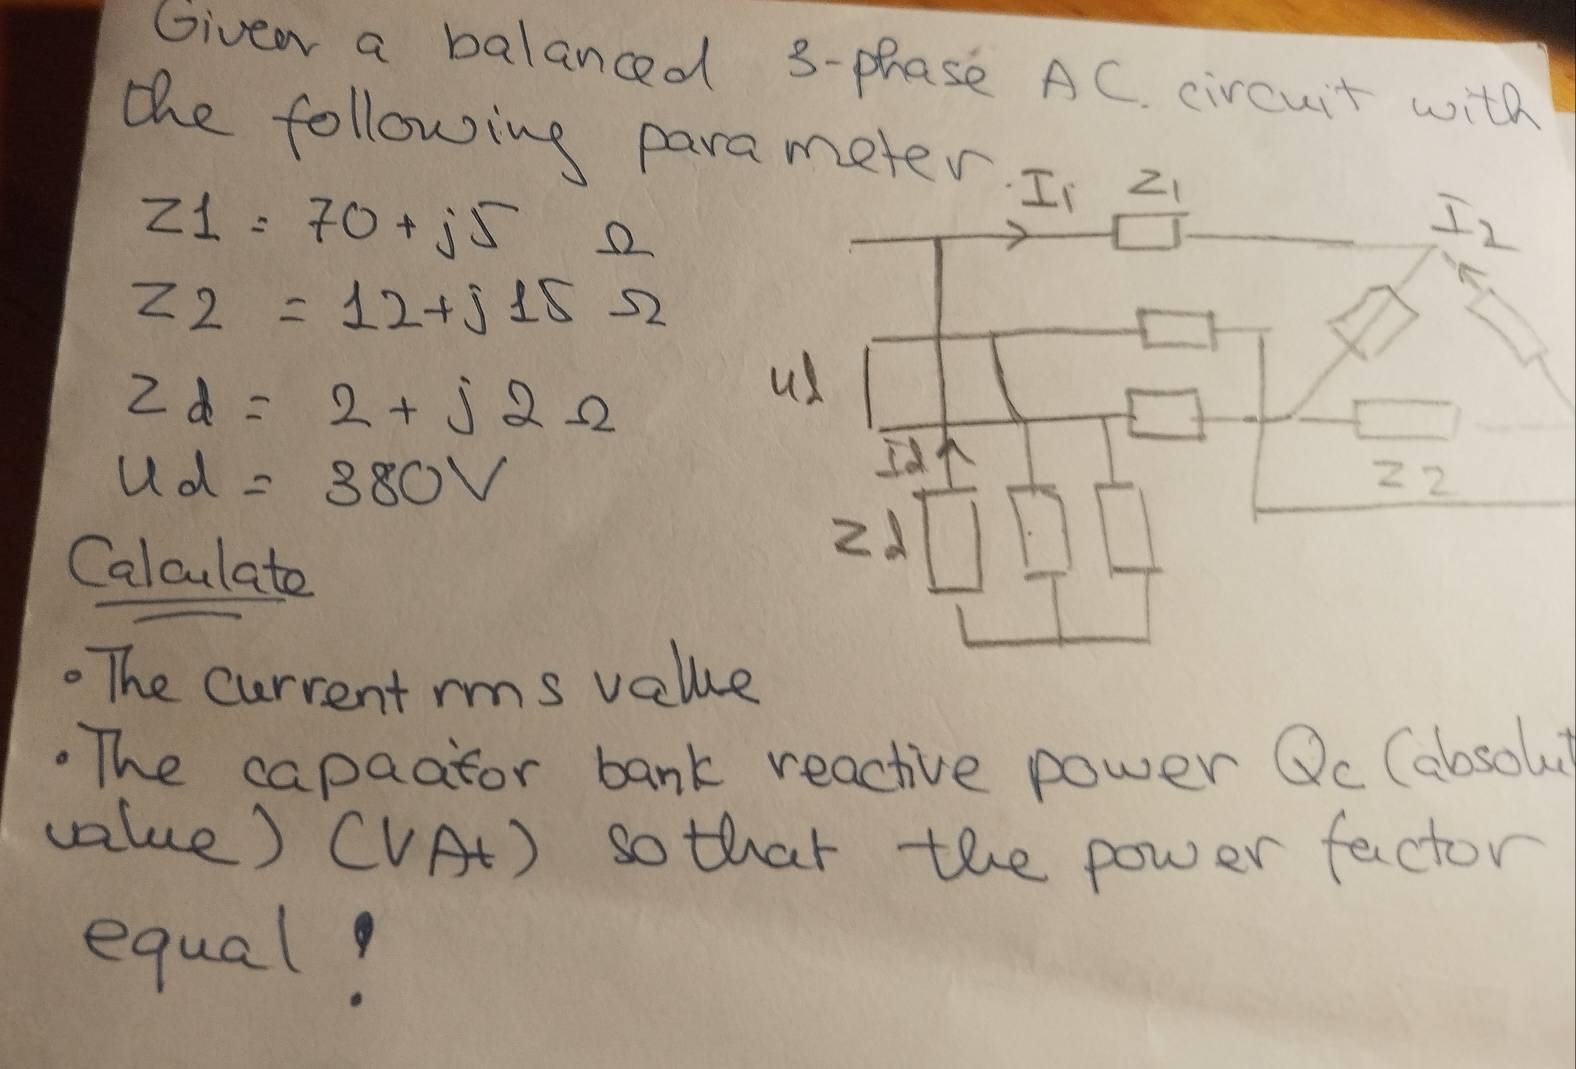 Given a balanced 3-phase AC. circuit with
the following parameter.
Z1 = 70 + j5 Ω
Z2 = 12 + j 15 Ω
Zd = 2 + j 2 Ω
Ud = 380V
I1 Z1
I2
Ud
Id
Zd
Z2
Calculate
• The current rms value
• The capacitor bank reactive power Qc (absolut
value) (VAr) so that the power factor
equal !